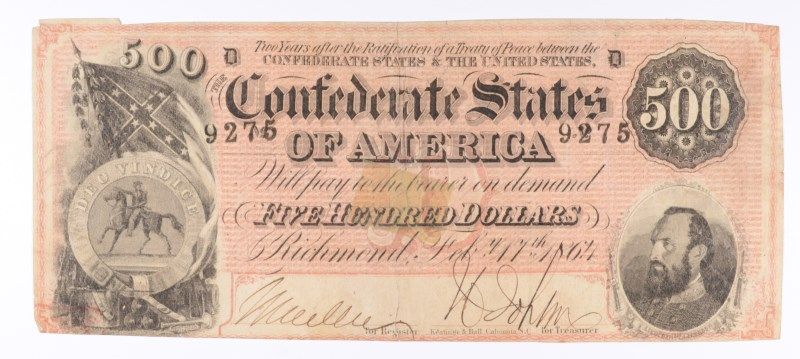 500 D Two Years after the Ratification of a Treaty of Peace between the D
CONFEDERATE STATES & THE UNITED STATES,
THE
Confederate States 500
9275 9275
OF AMERICA
DEO VINDICE
Will pay to the bearer on demand
FIVE HUNDRED DOLLARS
Richmond, Feby. 17th 1864
for Register Keatinge & Ball, Columbia, S.C. for Treasurer